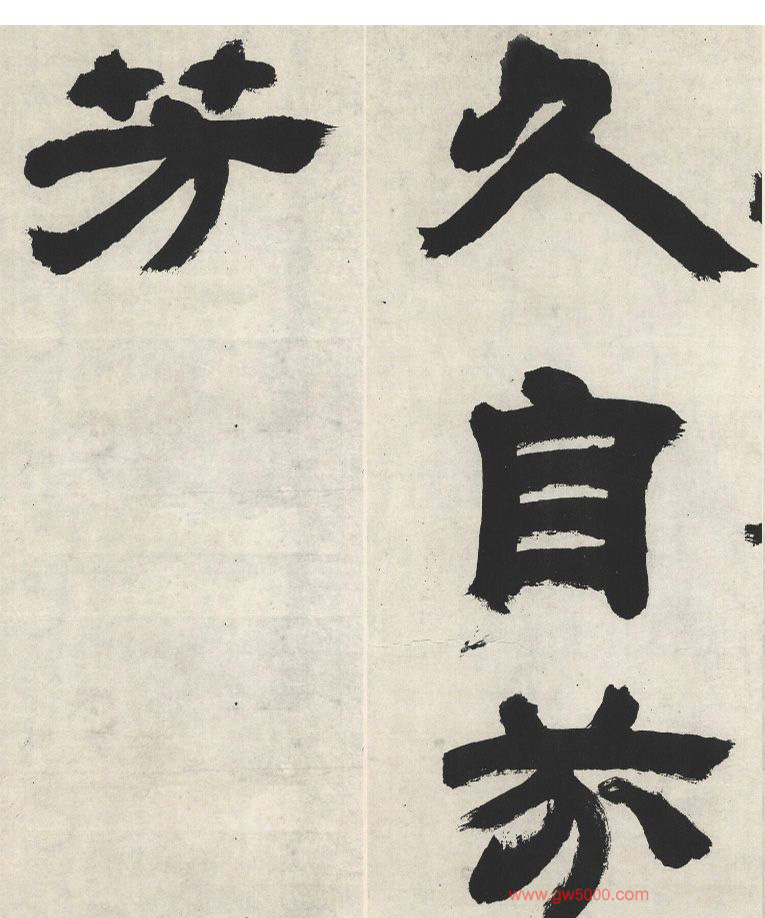 久自芬
芳
www.gw5000.com